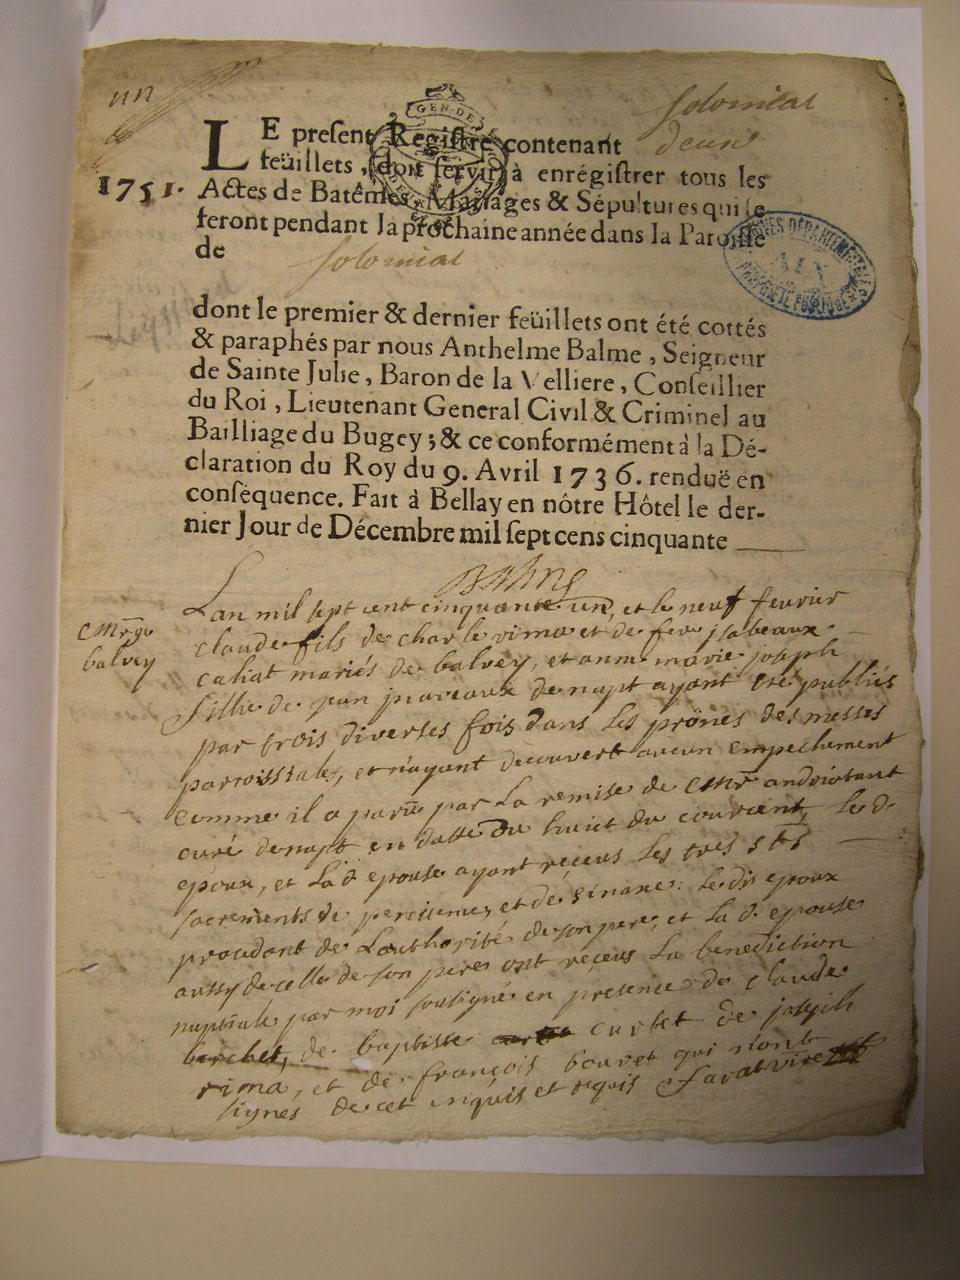 Solomiat
deux
GEN. DE
LE present Registre contenant
feüillets, doit servir à enrégistrer tous les
1751.
Actes de Batêmes, Mariages & Sépultures qui se
feront pendant la prochaine année dans la Paroisse
de Solomiat
dont le premier & dernier feüillets ont été cottés
& paraphés par nous Anthelme Balme, Seigneur
de Sainte Julie, Baron de la Velliere, Conseillier
du Roi, Lieutenant General Civil & Criminel au
Bailliage du Bugey; & ce conformément à la Dé-
claration du Roy du 9. Avril 1736. renduë en
conséquence. Fait à Bellay en nôtre Hôtel le der-
nier Jour de Décembre mil sept cens cinquante
Balme
Lan mil sept cent cinquante un, et le neuf fevrier
balvey
claude fils de charle rima et de feue jsabeaux
caliat mariés de balvey, et anne marie joseph
fillie de jean juveaux de napt ayant été publiés
par trois diverses fois dans les prönes des messes
parroissiales, et n'ayant decouvert aucun empechement
comme il a paru par La remise de andriotant
curé de napt en datte du huict du courant, Le d.
epoux, et La d epouse ayant receus les tres sts
sacrements de penitence, et de : Le dit epoux
procedant de Lauthorité de son pere, et La d. epouse
aussy de celle de son pere ont receus La benediction
nuptiale par moi soussigné en presence de claude
berchet, de baptiste curtet de joseph
rima, et de françois bouvet qui n'ont
signes de cet enquis et requis Savarvire